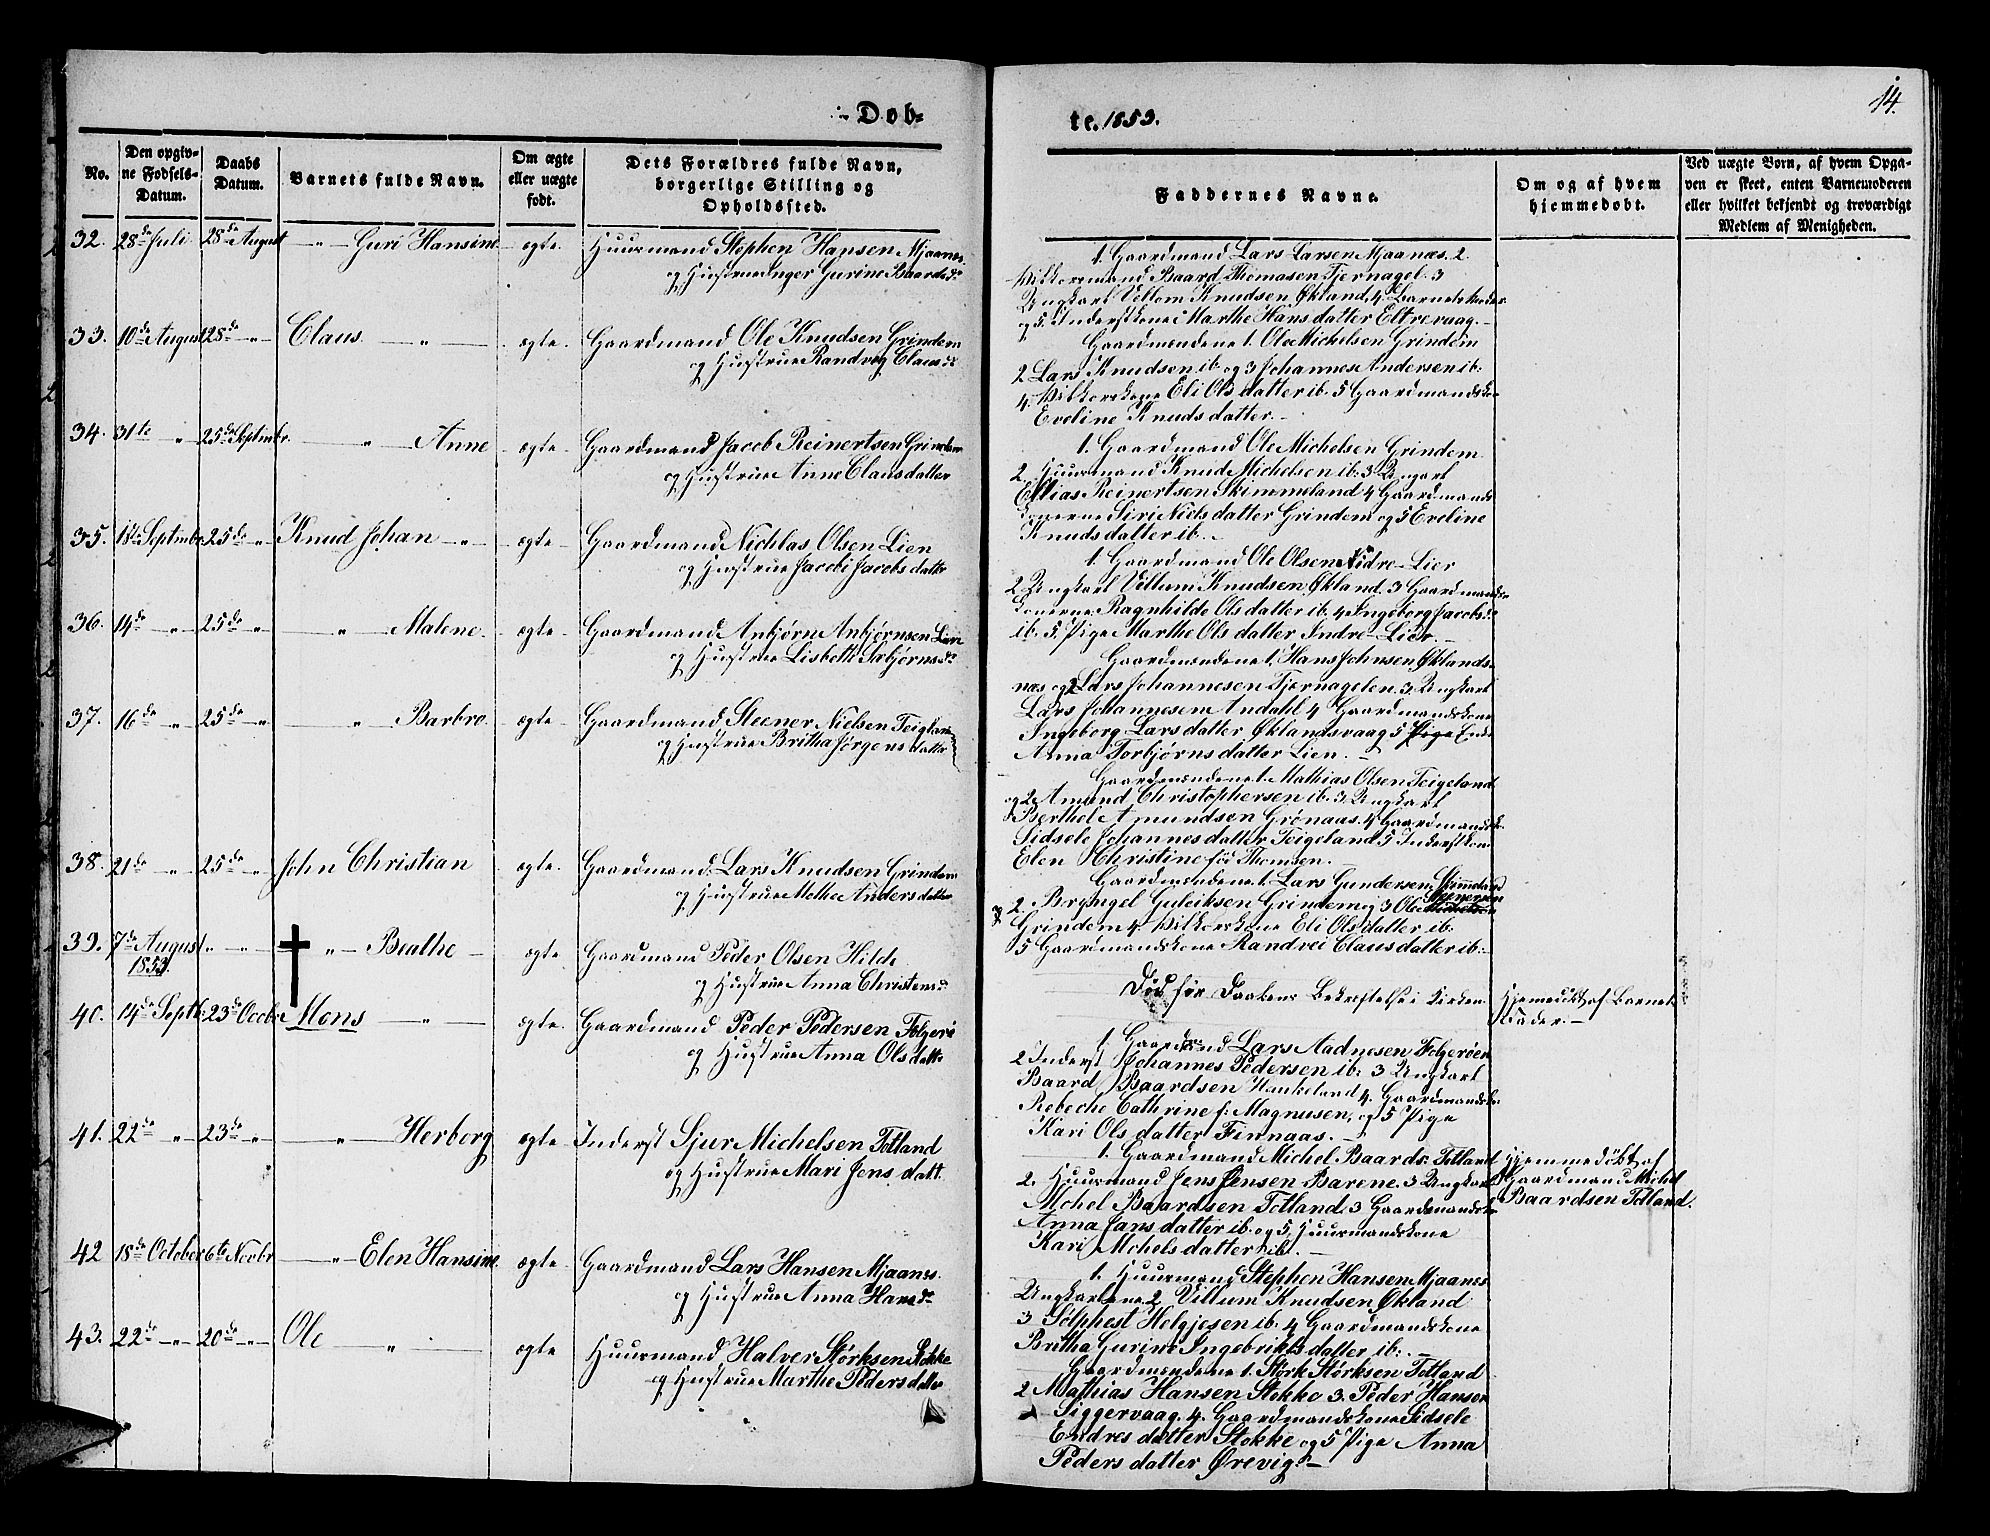 Døb-
te. 1853.
14.
No.
Den opgiv-
ne Fødsels-
Datum.
Daabs
Datum.
Barnets fulde Navn.
Om ægte
eller uægte
født.
Dets Forældres fulde Navn,
borgerlige Stilling og
Opholdssted.
Faddernes Navne.
Om og af hvem
hjemmedøbt.
Ved uægte Børn, af hvem Opga-
ven er skeet, enten Barnemoderen
eller hvilket bekjendt og troværdigt
Medlem af Menigheden.
32. 28de Juli 28de August — " — Guri Hansine ægte. Huurmand Stephen Hansen Mjaanes
og Hustrue Inger Gurine Baardsdr
1. Gaardmand Lars Larsen Mjaanæs. 2
Vilkorsmand Baard Thomasen Tjernagel. 3
Ungkarl Vellom Knudsen Økland, 4 Barnets Moder
og 5. Inderstkone Marthe Hansdatter Eltrevaag. —
33. 10de August 28de " Claus. — " — ægte. Gaardmand Ole Knudsen Grindem
og Hustrue Randveg Clausdr
Gaardmændene 1. Ole Michelsen Grindem
2 Lars Knudsen ib. og 3 Johannes Andersen ib:
4. Vilkorskone Eli Olsdatter ib. 5 Gaardmandsko-
Eveline Knudsdatter. —
34. 31te " 25de Septmbr. — " — Anne ægte. Gaardmand Jacob Reinertsen Grindem
og Hustrue Anne Clausdatter
1. Gaardmand Ole Michelsen Grindem
2. Huurmand Knud Michelsen ib: 3 Ungkarl
Ellias Reinertsen Skimmeland 4 Gaardmands
konerne Siri Nielsdatter Grindem og 5 Eveline
Knudsdatter ib. —
35. 1ste Septmbr 25de " Knud Johan — " — ægte Gaardmand Nichlas Olsen Lien
og Hustrue Jacobi Jacobsdattr
1. Gaardmand Ole Olsen Nidre-Lier
2 Ungkarl Villum Knudsen Økland. 3 Gaardmands-
konerne Ragnhilde Olsdatter ib. 4 Ingeborg Jacobsdr
ib. 5. Pige Marthe Olsdatter Indre-Lier. —
36. 14de " 25de " — " — Malene. ægte. Gaardmand Anbjørn Anbjørnsen Lien
og Hustrue Lisbeth Sæbjørnsdr
Gaardmændene 1. Hans Johnsen Øklands-
næs og 2 Lars Johannesen Tjernagelen. 3. Ungkarl
Lars Johannesen Andahl 4 Gaardmandskone
Ingeborg Larsdatter Øklandsvaag 5 Pige
Anna Torbjørnsdatter Lien. —
37. 16de " 25de " — " — Barbro. ægte Gaardmand Steener Nielsen Teigland
og Hustrue Britha Jørgensdatter
Gaardmændene 1. Mathias Olsen Teigeland
og 2. Amund Christophersen ib. 3. Ungkarl
Berthel Amundsen Grønaas. 4 Gaardmandsk-
Sidsele Johannesdatter Teigeland 5 Inderstkone
Elen Christine før Thomsen. —
38. 21de " 25de " John Christian ægte Gaardmand. Lars Knudsen Grindem
og Hustrue Methe Andersdatter
Gaardmændene 1. Lars Gundersen Skimmeland
2. Brynjel Guleiksen Grindem og 3 Ole
Grindem 4. Vilkorskone Eli Olsdatter ib.
5 Gaardmandskone Randvei Clausdatter ib:
39. 7de August " " — " — Beathe — ægte. Gaardmand Peder Olsen Hilde
1853. og Hustrue Anna Christensd:
Død før Daabens Bekræftelse i Kirken. Hjemedøbt af Barnets
Fader. —
40. 14de Septb: 23de Octbr Mons — " — ægte. Gaardmand Peder Pedersen Folgerø
og Hustrue Anna Olsdattr
1. Gaardmand Lars Aadnesen Folgerøen
2 Inderst Johannes Pedersen ib: 3 Ungkarl
Baard Baardsen Haukeland 4. Gaardmandsko-
Rebeche Cathrine f: Magnusen, og 5 Pige
Kari Olsdatter Finnaas. —
41. 22de " 23de " — " — Herborg ægte Inderst Sjur Michelsen Totland
og Hustrue Mari Jens datt.
1. Gaardmand Michel Baards: Totland
2. Huurmand Jens Jensen Barene. 3 Ungkarl
Mchel Baardsen Totland. 3 Gaardmandsk-
Anna Jansdatter ib. og 5, Huurmandskone
Kari Mchelsdatter ib. —
Hjemmedøbt af
Gaardmand Michel
Baardsen Totland.
42 18de October 6te Novbr. — " — Elen Hansine ægte. Gaardmand Lars Hansen Mjaanes.
og Hustrue Anna Hansdr
1. Huurmand Stephen Hansen Mjaanes
Ungkarlene 2 Villum Knudsen Økland
3 Sølphest Helgjesen ib. 4 Gaardmandskone
Britha Gurine Ingebriktsdatter ib: —
43. 22de " 20de " Ole — " — ægte Huurmand Halver Størksen Stokke
og Hustrue Marthe Pedersdatter
Gaardmændene 1. Størk Størksen Totland
2 Mathias Hansen Stokko 3. Peder Hansen
Siggervaag. 4. Gaardmandskone Sidsele
Endresdatter Stokke og 5 Pige Anna
Pedersdatter Ørevig. —